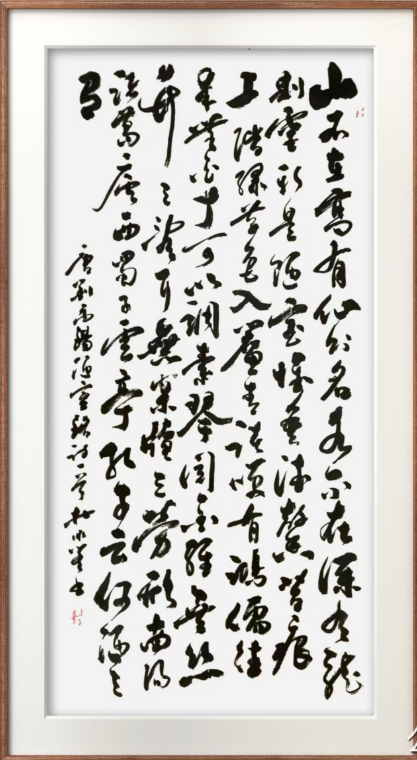 山不在高有仙則名水不在深有龍
則靈斯是陋室惟吾德馨苔痕
上階綠草色入簾青談笑有鴻儒往
來無白丁可以調素琴閱金經無絲
竹之亂耳無案牘之勞形南陽
諸葛廬西蜀子雲亭孔子云何陋之
有
唐劉禹錫陋室銘詩一首 書